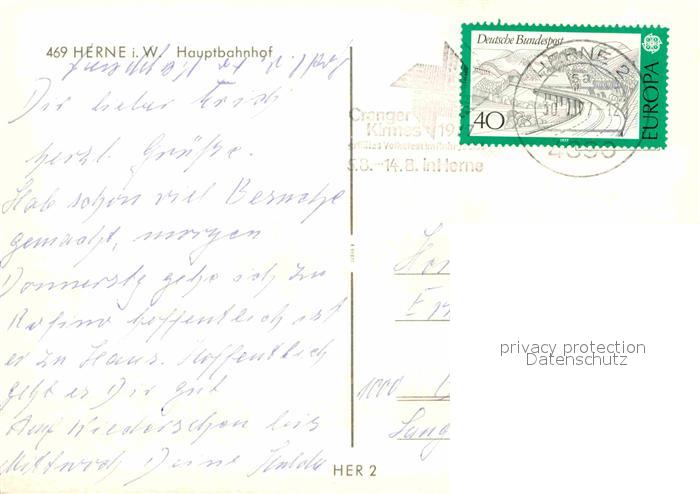 469 HERNE i. W. Hauptbahnhof
Dir lieber
herzl. Grüße.
Hab schon viel Besuche
gemacht, morgen
Donnerstg gehe ich zu
hoffentlich ist
er zu Haus. Hoffentlich
geht es Dir gut
Auf Wiedersehen bis
Mittwoch Deine Hulda
HER 2
Deutsche Bundespost
40
EUROPA
HERNE 2
4690
Cranger
Kirmes 1977
größtes Volksfest im Ruhrgebiet
5.8.-14.8. in Herne
1000
privacy protection
Datenschutz